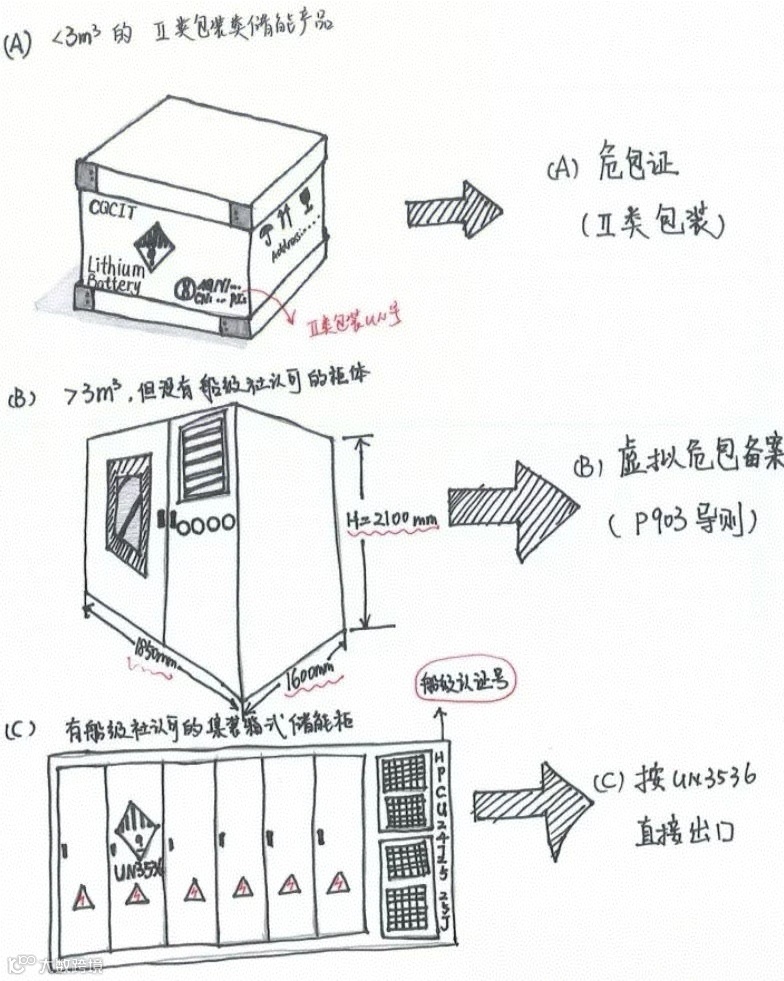 (A) <3m³ 的 Ⅱ类包装类储能产品
(A) 危包证
(Ⅱ类包装)
CQCIT
Lithium
Battery
Ⅱ类包装UN号
(B) >3m³,但没有船级社认可的柜体
(B) 虚拟危包备案
(P903导则)
H=2100mm
1850mm
1600mm
船级认证号
(C) 有船级社认可的集装箱式储能柜
(C) 按UN3536
直接出口
9
UN3536
大数跨境